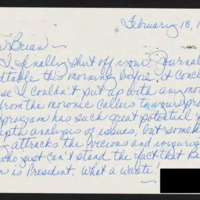 February 18, 1
Brian –
I finally shut off your Journal
table this morning before it conc
se I couldn't put up with anymo
from the moronic callers to your pro
program has such great potential
depth analysis of issues, but someh
attracks the vicious and
who just can't stand the fact that B
n is President. What a waste!